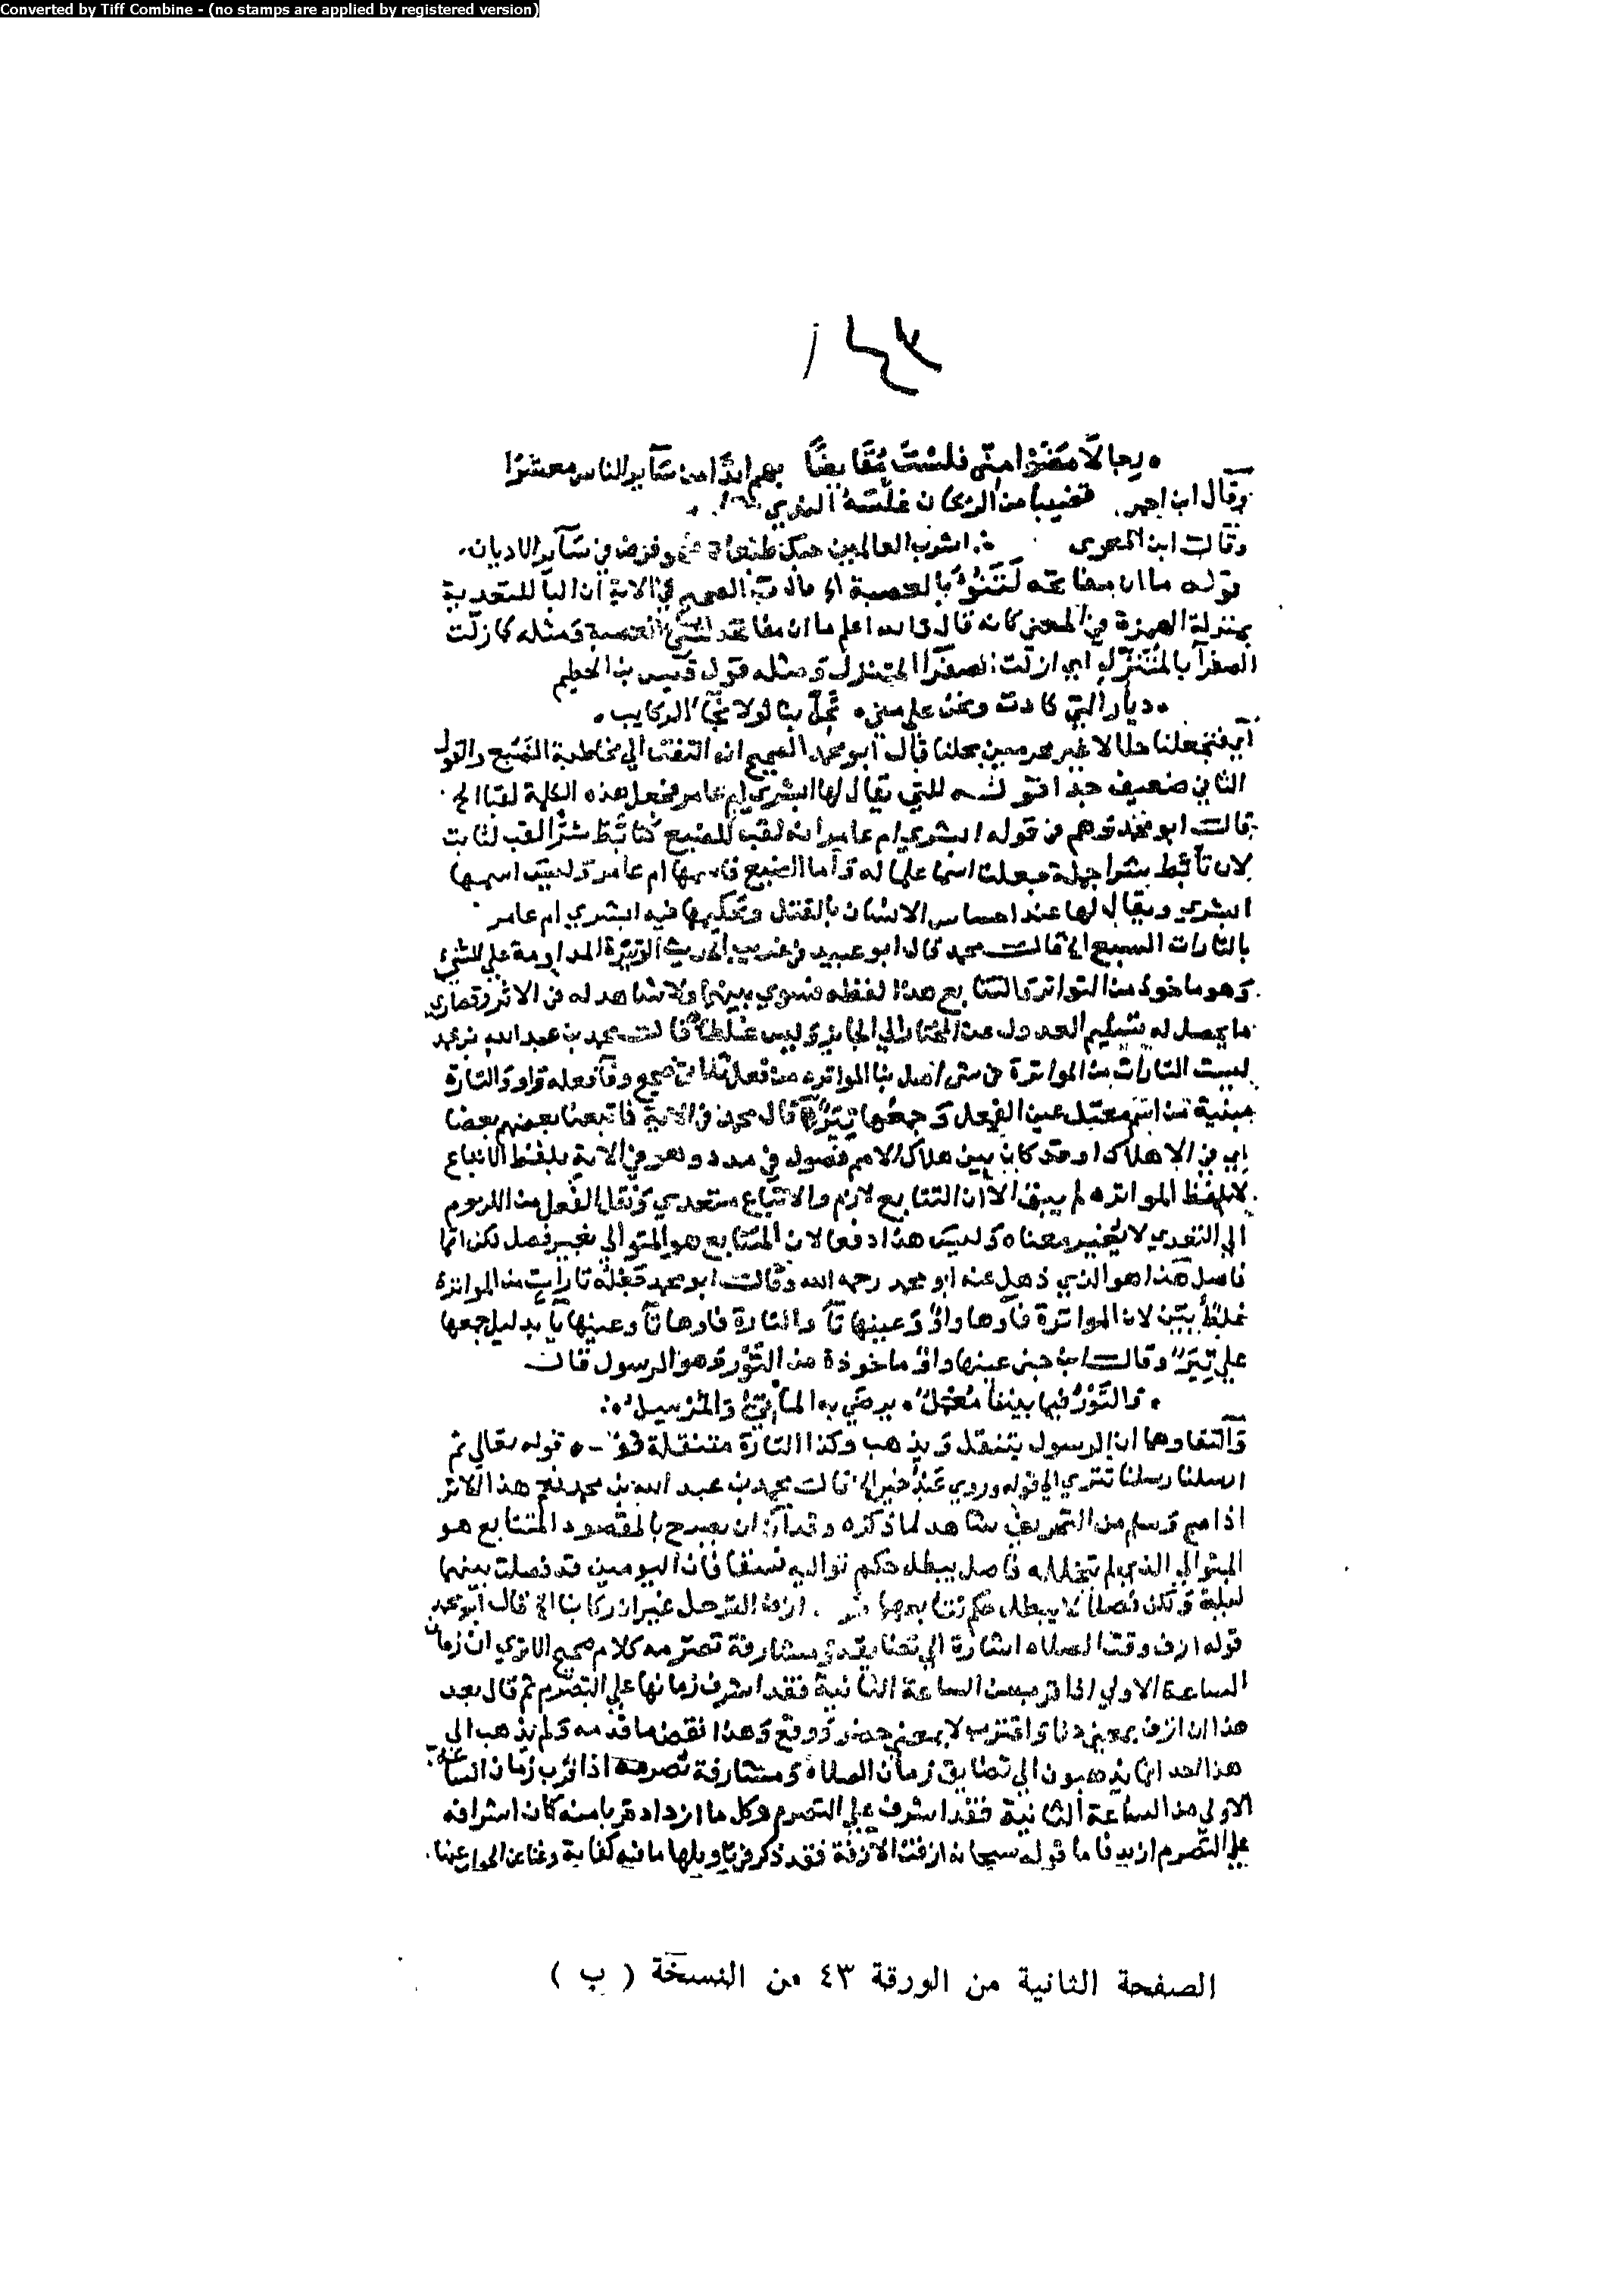 Converted by Tiff Combine - (no stamps are applied by registered version)
٤٣ /
رجالا مضوا مني فلست مقايضا بهم ابدا من سآير الناس معشرا
وقال ابن احمر قضيبا من الريحان غلسه الندي
وقال ابن المعري اشرب العالمين طبعا وفرض في سآير الاديان
قوله ما ان مفاتحه لتنوء بالعصبة الي قال الصحيح في الآية ان البآ للتعدية
بمنزلة الهمزة في المعني كانه قال والله اعلم ما ان مفاتحه العصبة ومثله كما زلت
الصفرآ بالمتنزل اي ازلت الصفرا المتنزل ومثله قول قيس بن الخطيم
ديار التي كادت ونحن علي مني تحل بنا لولا نجآ الركايب
اي فتجعلنا حلالا غير محرمين بحلنا قال ابو محمد الصحيح انه التفت الي مخاطبة الضبع والقول
الثاني ضعيف جدا قوله للتي يقال لها ابشري ام عامر فجعل هذه الكلمة لقبا الخ
قال ابو محمد توهم في قوله ابشري ام عامر انه لقب للضبع كتأبط شرا لقب لثابت
لان تأبط شرا جملة جعلت اسما علما له واما الضبع فاسمها ام عامر وليس اسمها
ابشري ويقال لها عند احساس الانسان بالقتل وتحكيمها فيه ابشري ام عامر
بالتارات السبع الخ قال محمد قال ابو عبيد في غريب الحديث الوتيرة المداومة علي الشيء
وهو ماخوذ من التواتر والتتابع هذا لفظه فسوي بينهما ولا شاهد له في الاثر وقصاري
ما يحصل له بتسليم العدول عن المختار الي الجايز وليس غلطا قال محمد بن عبد الله بن محمد
ليست التارات من المواترة في شي اصل بنا المواتره من فعل ثلاثي صحيح وفآ فعله واو والتارة
مبنية من معتل عين الفعل وجمعها تير قال محمد في الآية فاتبعنا بعضهم بعضا
اي في الاهلاك وقد كان بين هلاك الامم فصول في مدد وهو في الآية بلفظ الاتباع
لا بلفظ المواتره لم يبق الا ان التتابع لازم والاتباع متعدي ونقل الفعل من اللزوم
الي التعدي لا يغير معناه وليس هذا دفعا لان المتتابع هو المتوالي بغير فصل
فاصل هذا هو الذي ذهل عنه ابو محمد رحمه الله وقال ابو محمد فجعله تارات من المواترة
غلط بين لان المواترة فآوها واو وعينها تآ والتارة فاوها تآ وعينها يآ بدليل جمعها
علي تير وقال ابن جني عينها واو ماخوذة من التور وهو الرسول قال
والتور فيما بيننا معمل يرضي به المأتي والمرسل
والتقاوهما ان الرسول يتنقل ويذهب وكذا التارة متنقلة قوله تعالي ثم
ارسلنا رسلنا تتري الي قوله وروي عبد خير الخ قال محمد بن عبد الله بن محمد في هذا الاثر
اذا صح وسلم من التحريف شاهد لما ذكره وقد آن ان يصرح بالمقصود المتتابع هو
المتوالي الذي لم يتخلله فاصل يبطل حكم تواليه نسقا فان اليومين قد فصلت بينهما
ليلة ولكن فصلا لا يبطل حكم تتابعهما ازف الترحل غير ان ركابنا الخ قال ابو محمد
قوله ازف وقت الصلاه اشارة الي تضايقه ومشارفة تصرمه كلام صحيح الا تري ان زمان
الساعة الاولي اذا قرب من الساعة الثانية فقد اشرف زمانها علي التصرم ثم قال بعد
هذا ان ازف بمعني دنا واقترب لا بمعني حضر ووقع وهذا نقض ما قدمه ولم يذهب الي
هذا احد انما يذهبون الي تضايق زمان الصلاة ومشارفة تصرمه اذا قرب زمان الساعة
الاولي من الساعة الثانية فقد اشرف علي التصرم وكل ما ازداد قربا منه كان اشرافه
علي التصرم ازيد فاما قوله سبحانه ازفت الآزفة فقد ذكر في تاويلها ما فيه كفاية وغنا عن الجواب عنها
الصفحة الثانية من الورقة ٤٣ من النسخة ( ب )